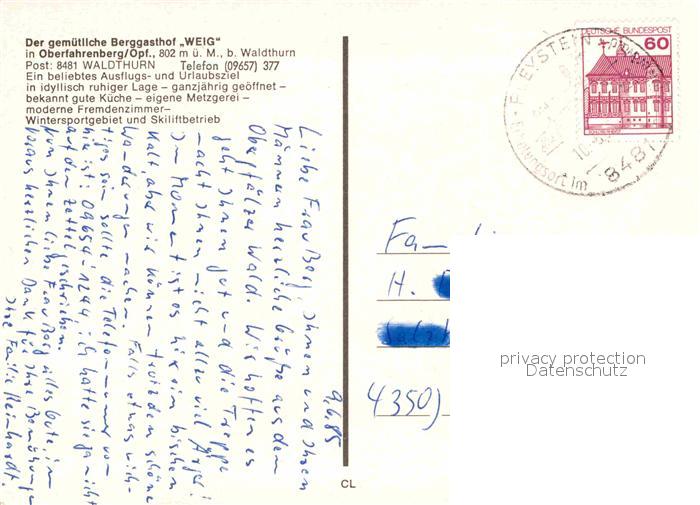 Der gemütliche Berggasthof „WEIG“
in Oberfahrenberg/Opf., 802 m ü. M., b. Waldthurn
Post: 8481 WALDTHURN Telefon (09657) 377
Ein beliebtes Ausflugs- und Urlaubsziel
in idyllisch ruhiger Lage – ganzjährig geöffnet –
bekannt gute Küche – eigene Metzgerei –
moderne Fremdenzimmer–
Wintersportgebiet und Skiliftbetrieb
9.6.85
Liebe Frau Borg, Ihnen und Ihren
Männern herzliche Grüße aus dem
Oberpfälzer Wald. Wir hoffen es
geht Ihnen gut und die Treppe
macht Ihnen nicht allzu viel Ärger!
Im Moment ist es hier ein bischen
kalt, aber wir können trotzdem schöne
Wanderungen machen. Falls etwas wich-
tiges sein sollte die Telefonnummer von
hier ist: 09654-1244, ich hatte sie ja nicht
auf den Zettel geschrieben.
Nun Ihnen liebe Frau Borg alles Gute, im
Voraus herzlichen Dank für Ihre Bemühungen
Ihre Familie Reinhardt.
DEUTSCHE BUNDESPOST
60
PLEYSTEIN
8481
Fam
H.
4350)
CL
privacy protection
Datenschutz